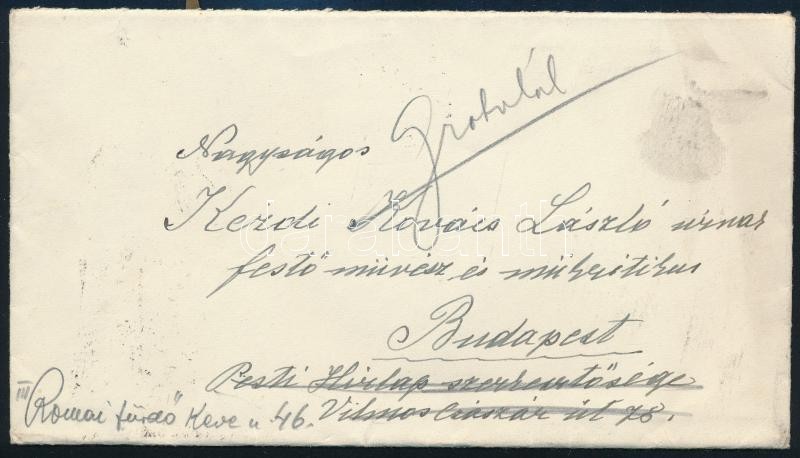 Gratulál
Nagyságos
Kezdi Kovács László urnak
festő művész és műkritikus
Budapest
Pesti Hirlap szerkesztősége
Vilmos császár út 78.
III Romai fürdő Keve u 46.
darabanth